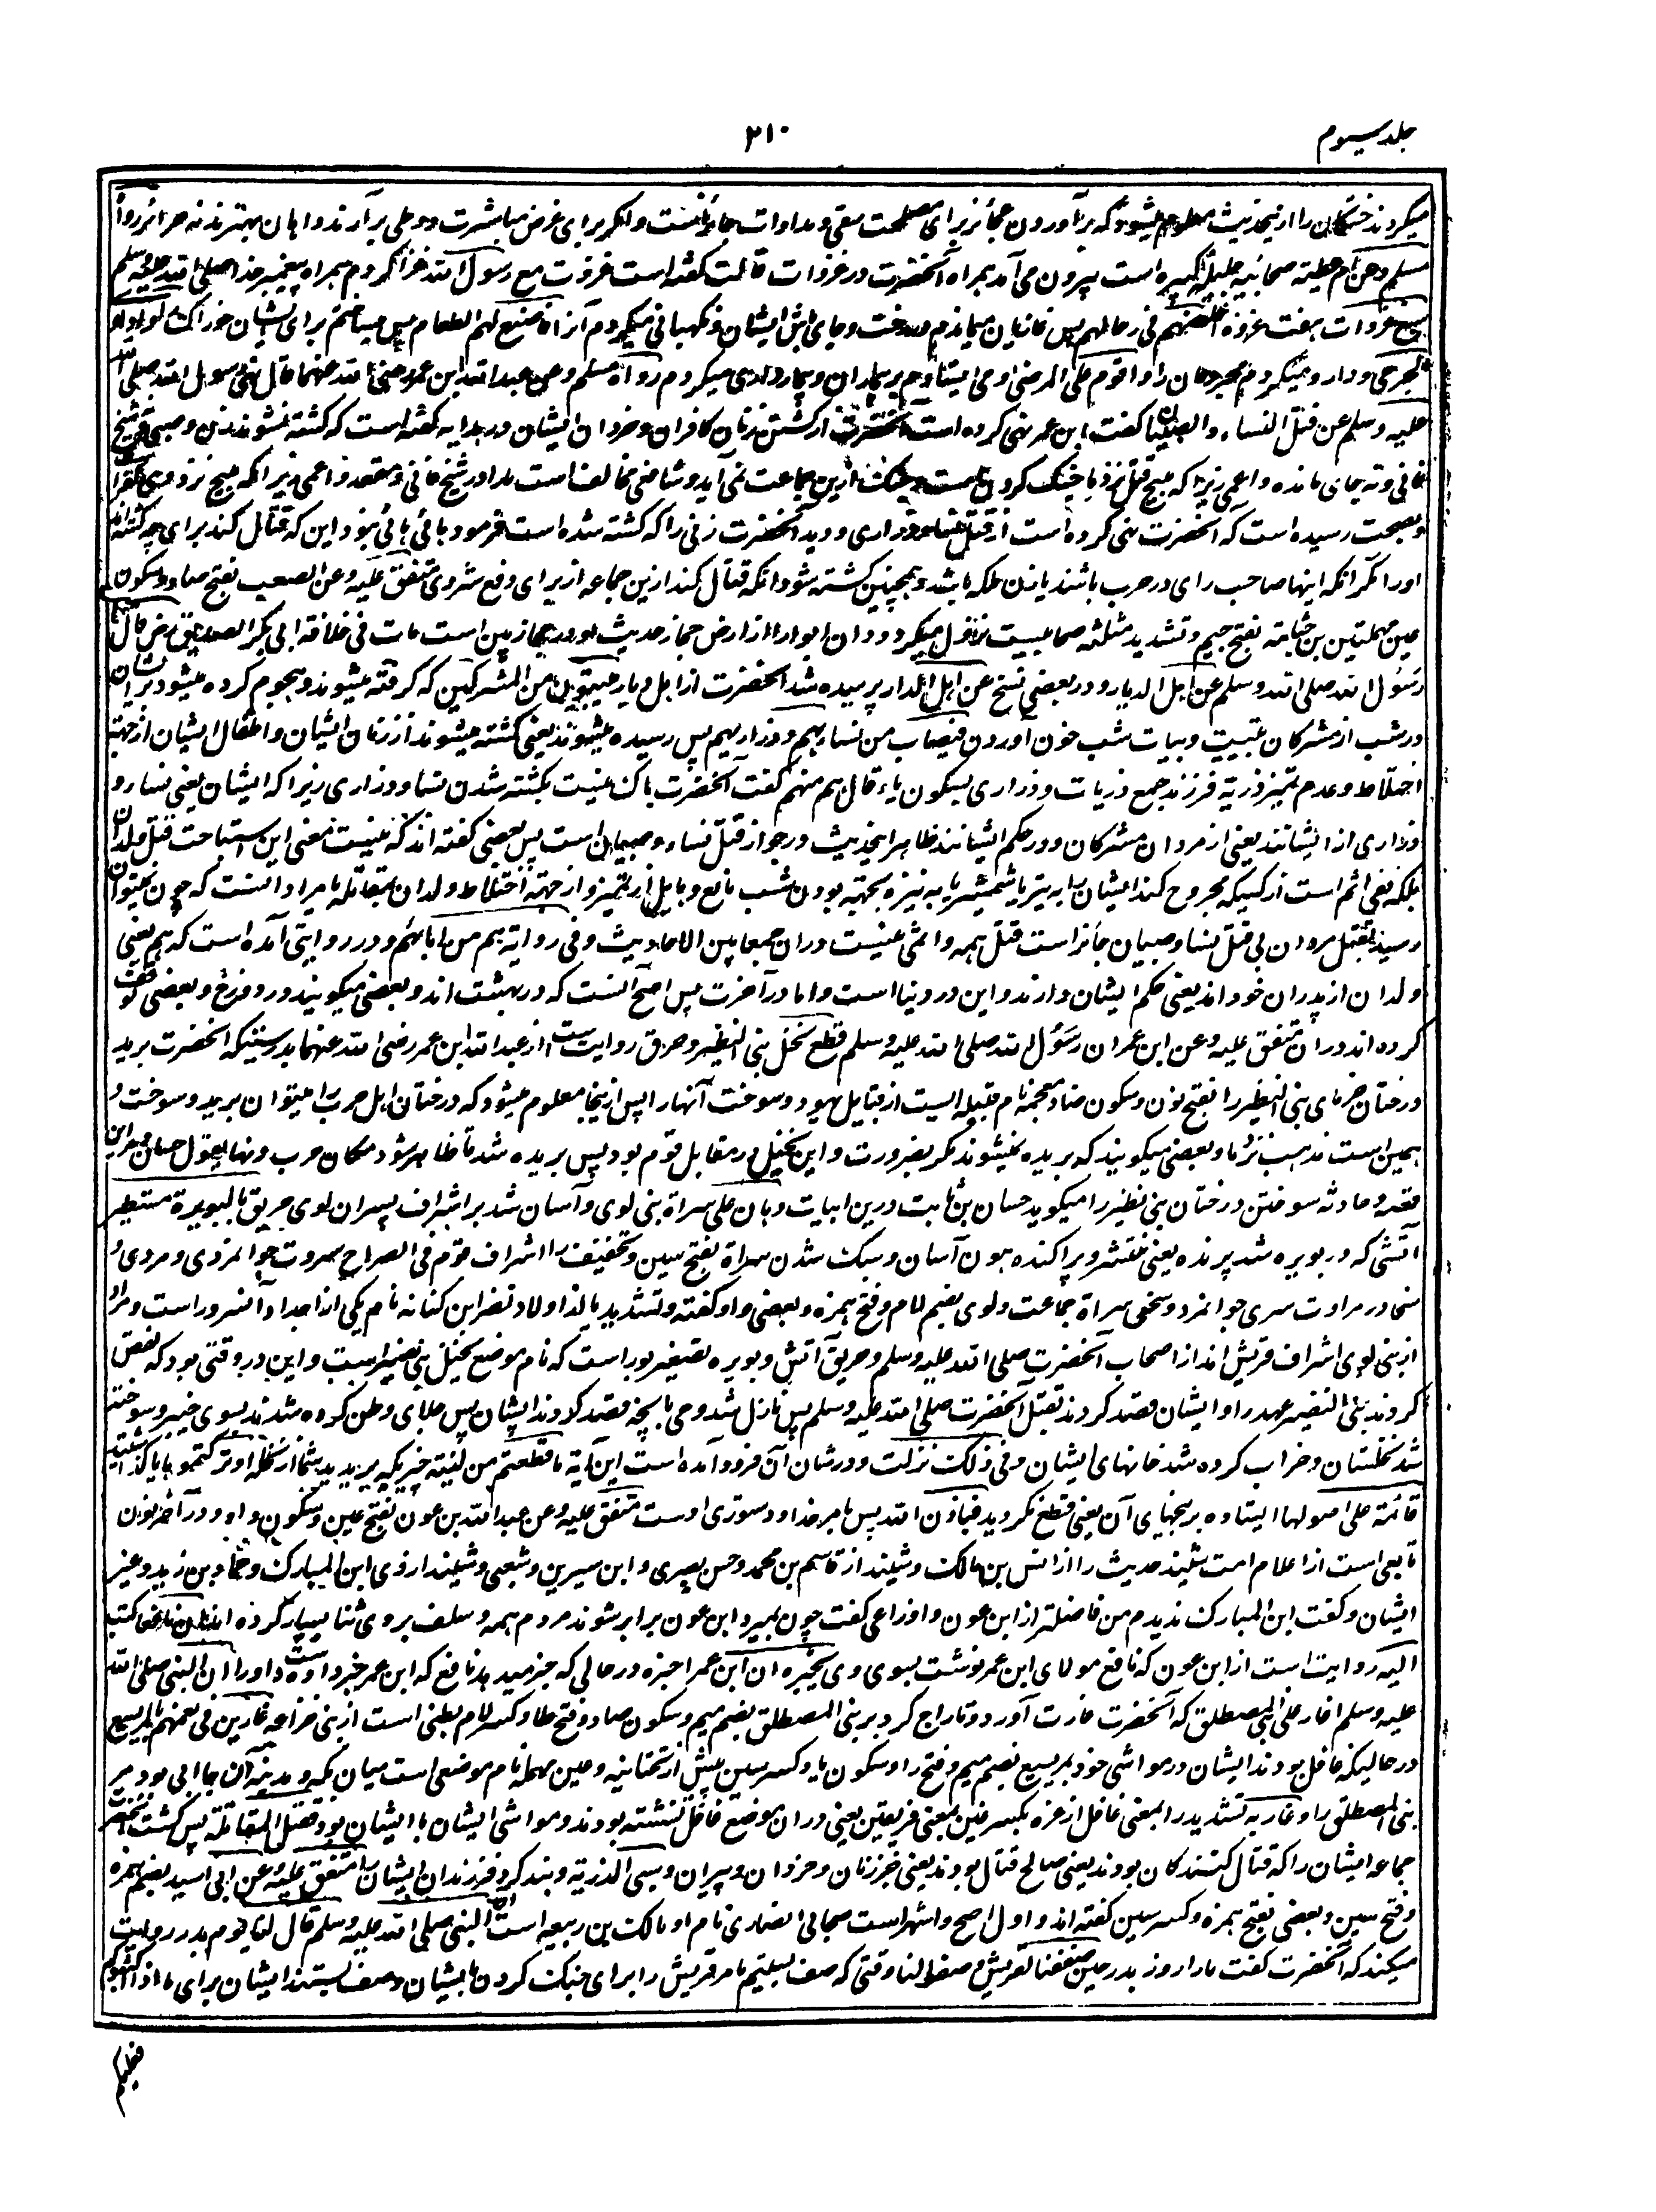 جلد سیوم
۳۱۰
میکردند خستگان را ازینحدیث معلوم میشود که برآوردن عجائز برای مصلحت سقی و مداوات جائز است و اگر برای غرض مباشرت و وطی برآرند و اماء بهترند نه حرائر رواه
مسلم وعن ام عطیة صحابیه جلیله کبیره است بیرون می آمد همراه آنحضرت در غزوات قالت گفته است غزوت مع رسول الله غزا کردم همراه پیغمبر خدا صلی الله علیه وسلم
سبع غزوات هفت غزوه اخلفهم فی رحالهم پس غازیان میماندم در رخت و جای باش ایشان و نگهبانی میکردم آنرا فاصنع لهم الطعام پس میساختم برای ایشان خوراک
الجرحی و دارو میکردم مجروحان را و اقوم علی المرضی و می ایستادم بر بیماران و بیمارداری میکردم رواه مسلم وعن عبد الله ابن عمر رضی الله عنهما قال نهی رسول الله صلی الله
علیه وسلم عن قتل النساء والصبیان گفت ابن عمر نهی کرده است آنحضرت از کشتن زنان کافران و خردان ایشان و در هدایه گفته است که کشته نشوند زن و صبی و شیخ
فانی و نه جای مانده و اعمی زیرا که مبیح قتل نزد ما جنگ کردن است و جنگ ازین جماعت نمی آید و شافعی مخالف است ما را در شیخ فانی و مقعد و اعمی زیرا که مبیح نزد وی کفر است
و بصحت رسیده است که آنحضرت نهی کرده است از قتل نساء و ذراری و دید آنحضرت زنی را که کشته شده است فرمود هائی هائی نبود این که قتال کند برای چه کشته اند
اورا مگر آنکه اینها صاحب رای در حرب باشند یا زن ملکه باشد و همچنین کشته شود آنکه قتال کند ازین جماعه از برای دفع شر وی متفق علیه وعن الصعب بفتح صاد و سکون
عین مهملتین بن جثامة بفتح جیم و تشدید مثلثه صحابیست نزول میکرد ودان و ابوا را از ارض حجاز حدیث او در حجازیین است مات فی خلافة ابی بکر الصدیق رض قال
رسول الله صلی الله وسلم عن اهل الدیار و در بعضی نسخ عن اهل الدار پرسیده شد آنحضرت از اهل دیار یبیتون من المشرکین که گرفته میشوند و هجوم کرده میشود بر ایشان
در شب از مشرکان تبییت و بیات شب خون آوردن فیصاب من نسائهم و ذراریهم پس رسیده میشوند یعنی کشته میشوند از زنان ایشان و اطفال ایشان از جهة
اختلاط و عدم تمیز ذریة فرزند جمع ذریات و ذراری بسکون یاء قال هم منهم گفت آنحضرت باک نیست بکشته شدن نسا و ذراری زیرا که ایشان یعنی نساء و
ذراری از ایشانند یعنی از مردان مشرکان و در حکم ایشانند ظاهر اینحدیث در جواز قتل نساء و صبیان است پس بعضی گفته اند که نیست معنی این استباحت قتل ولدان
بلکه نفی اثم است از کسیکه مجروح کند ایشان را به تیر یا شمشیر یا به نیزه بجهة بودن شب مانع و حایل از تمیز و از جهة اختلاط ولدان بمقاتله یا مراد آنست که چون نمیتوان
رسید بقتل مردان بی قتل نسا و صبیان جائز است قتل همه و اثمی نیست دران جمعا بین الاحادیث و فی روایة هم من ابائهم و در روایتی آمده است که هم یعنی
ولدان از پدران خود اند یعنی حکم ایشان دارند و این در دنیا است و اما در آخرت پس اصح آنست که در بهشت اند و بعضی میگویند در دوزخ و بعضی توقف
کرده اند دران متفق علیه وعن ابن عمر ان رسول الله صلی الله علیه وسلم قطع نخل بنی النضیر وحرق روایت است از عبد الله ابن عمر رضی الله عنهما بدرستیکه آنحضرت برید
درختان خرمای بنی النضیر را بفتح نون و سکون ضاد معجمه نام قبیله ایست از قبایل یهود و سوخت آنها را پس ازینجا معلوم میشود که درختان اهل حرب را میتوان برید و سوخت و
همین است مذهب نزد ما و بعضی میگویند که بریده نمیشوند مگر بضرورت و این نخیل در مقابل قوم بود پس بریده شد تا ظاهر شود مکان حرب ولها یقول حسان و مر این
قصه و حادثه سوختن درختان بنی نضیر را میگوید حسان بن ثابت درین ابیات وهان علی سراة بنی لوی و آسان شد بر اشراف پسران لوی حریق بالبویرة مستطیر
آتشی که در بویره شد پرنده یعنی منتشر و پراکنده هون آسان و سبک شدن سراة بفتح سین و تخفیف را اشراف قوم فی الصراح سروت جوانمردی و مردی و
سخا در مراوت سری جوانمرد و سخی سراة جماعت ولوی بضم لام و فتح همزه و بعضی واو گفته و تشدید یا از اولاد نضر ابن کنانه نام یکی از اجداد آنسرور است و مراد
از بنی لوی اشراف قریش اند از اصحاب آنحضرت صلی الله علیه وسلم و حریق آتش و بویره تصغیر بور است که نام موضع نخیل بنی نضیر است و این در وقتی بود که نقض
کردند بنی النضیر عهد را و ایشان قصد کردند بقتل آنحضرت صلی الله علیه وسلم پس نازل شد وحی بآنچه قصد کردند ایشان پس جلای وطن کرده شدند بسوی خیبر و سوخته
شد نخلستان و خراب کرده شد خانهای ایشان وفی ذلک نزلت و در شان آن فرود آمده است این آیة ما قطعتم من لینة چیزیکه بریدید شما از نخله او ترکتموها یا گذاشتید
قائمة علی اصولها ایستاده بر بیخهای آن یعنی قطع نکردید فباذن الله پس بامر خدا و دستوری اوست متفق علیه وعن عبد الله بن عون بفتح عین و سکون واو و در آخر نون
تابعی است از اعلام امت شنید حدیث را از انس بن مالک و شنید از قاسم بن محمد و حسن بصری و ابن سیرین و شعبی و شنید از وی ابن المبارک و حماد بن زید و غیر
ایشان و گفت ابن المبارک ندیدم من فاضلتر از ابن عون و اوزاعی گفت چون بمیرد ابن عون برابر شوند مردم همه و سلف بر وی ثنا بسیار کرده اند ان نافعا کتب
الیه روایت است از ابن عون که نافع مولای ابن عمر نوشت بسوی وی یخبره ان ابن عمر اخبره در حالی که خبر میدهد نافع که ابن عمر خبر داده است اورا ان النبی صلی الله
علیه وسلم اغار علی بنی المصطلق که آنحضرت غارت آورد و تاراج کرد بر بنی المصطلق بضم میم و سکون صاد و فتح طا و کسر لام بطنی است از بنی خزاعه غارین فی نعمهم بالمریسیع
در حالیکه غافل بودند ایشان در مواشی خود بمریسیع بضم میم و فتح را و سکون یا و کسر سین پیش از تحتانیه و عین مهمله نام موضعی است میان مکه و مدینه آن جا آبی بود مر
بنی المصطلق را و غار به تشدید را بمعنی غافل از غره بکسر غین بمعنی فریفتن یعنی دران موضع غافل نشسته بودند و مواشی ایشان با ایشان بود فقتل المقاتلة پس کشت آنحضرت
جماعه ایشان را که قتال کنندگان بودند یعنی صالح قتال بودند یعنی جز زنان و خردان و پیران وسبی الذریة و بند کرد فرزندان ایشان را متفق علیه وعن ابی اسید بضم همزه
و فتح سین و بعضی بفتح همزه و کسر سین گفته اند و اول اصح و اشهر است صحابی انصاری نام او مالک بن ربیعه است ان النبی صلی الله علیه وسلم قال لنا یوم بدر روایت
میکند که آنحضرت گفت ما را روز بدر حین صففنا لقریش وصفوا لنا وقتی که صف بستیم ما مر قریش را برای جنگ کردن با ایشان و صف بستند ایشان برای ما اذا اکثبوکم
فعلیکم